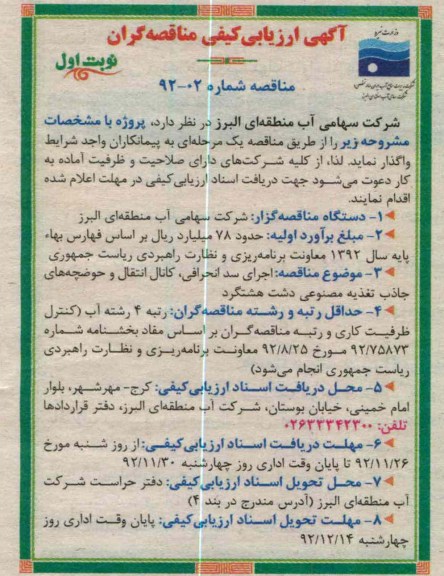 آگهی ارزیابی کیفی مناقصه‌گران
وزارت نیرو
نوبت اول
مناقصه شماره ۰۲-۹۲
شرکت سهامی آب منطقه‌ای البرز در نظر دارد، پروژه با مشخصات
مشروحه زیر را از طریق مناقصه یک مرحله‌ای به پیمانکاران واجد شرایط
واگذار نماید. لذا، از کلیه شرکت‌های دارای صلاحیت و ظرفیت آماده به
کار دعوت می‌شود جهت دریافت اسناد ارزیابی‌کیفی در مهلت اعلام شده
اقدام نمایند.
۱- دستگاه مناقصه‌گزار: شرکت سهامی آب منطقه‌ای البرز
۲- مبلغ برآورد اولیه: حدود ۷۸ میلیارد ریال بر اساس فهارس بهاء
پایه سال ۱۳۹۲ معاونت برنامه‌ریزی و نظارت راهبردی ریاست جمهوری
۳- موضوع مناقصه: اجرای سد انحرافی، کانال انتقال و حوضچه‌های
جاذب تغذیه مصنوعی دشت هشتگرد
۴- حداقل رتبه و رشته مناقصه‌گران: رتبه ۴ رشته آب (کنترل
ظرفیت کاری و رتبه مناقصه‌گران بر اساس مفاد بخشنامه شماره
۹۲/۷۵۸۷۳ مورخ ۹۲/۸/۲۵ معاونت برنامه‌ریزی و نظارت راهبردی
ریاست جمهوری انجام می‌شود)
۵- محل دریافت اسناد ارزیابی‌کیفی: کرج- مهرشهر، بلوار
امام خمینی، خیابان بوستان، شرکت آب منطقه‌ای البرز، دفتر قراردادها
تلفن: ۰۲۶۳۳۳۴۲۳۰۰
۶- مهلت دریافت اسناد ارزیابی‌کیفی: از روز شنبه مورخ
۹۲/۱۱/۲۶ تا پایان وقت اداری روز چهارشنبه ۹۲/۱۱/۳۰
۷- محل تحویل اسناد ارزیابی‌کیفی: دفتر حراست شرکت
آب منطقه‌ای البرز (آدرس مندرج در بند ۴)
۸- مهلت تحویل اسناد ارزیابی‌کیفی: پایان وقت اداری روز
چهارشنبه ۹۲/۱۲/۱۴